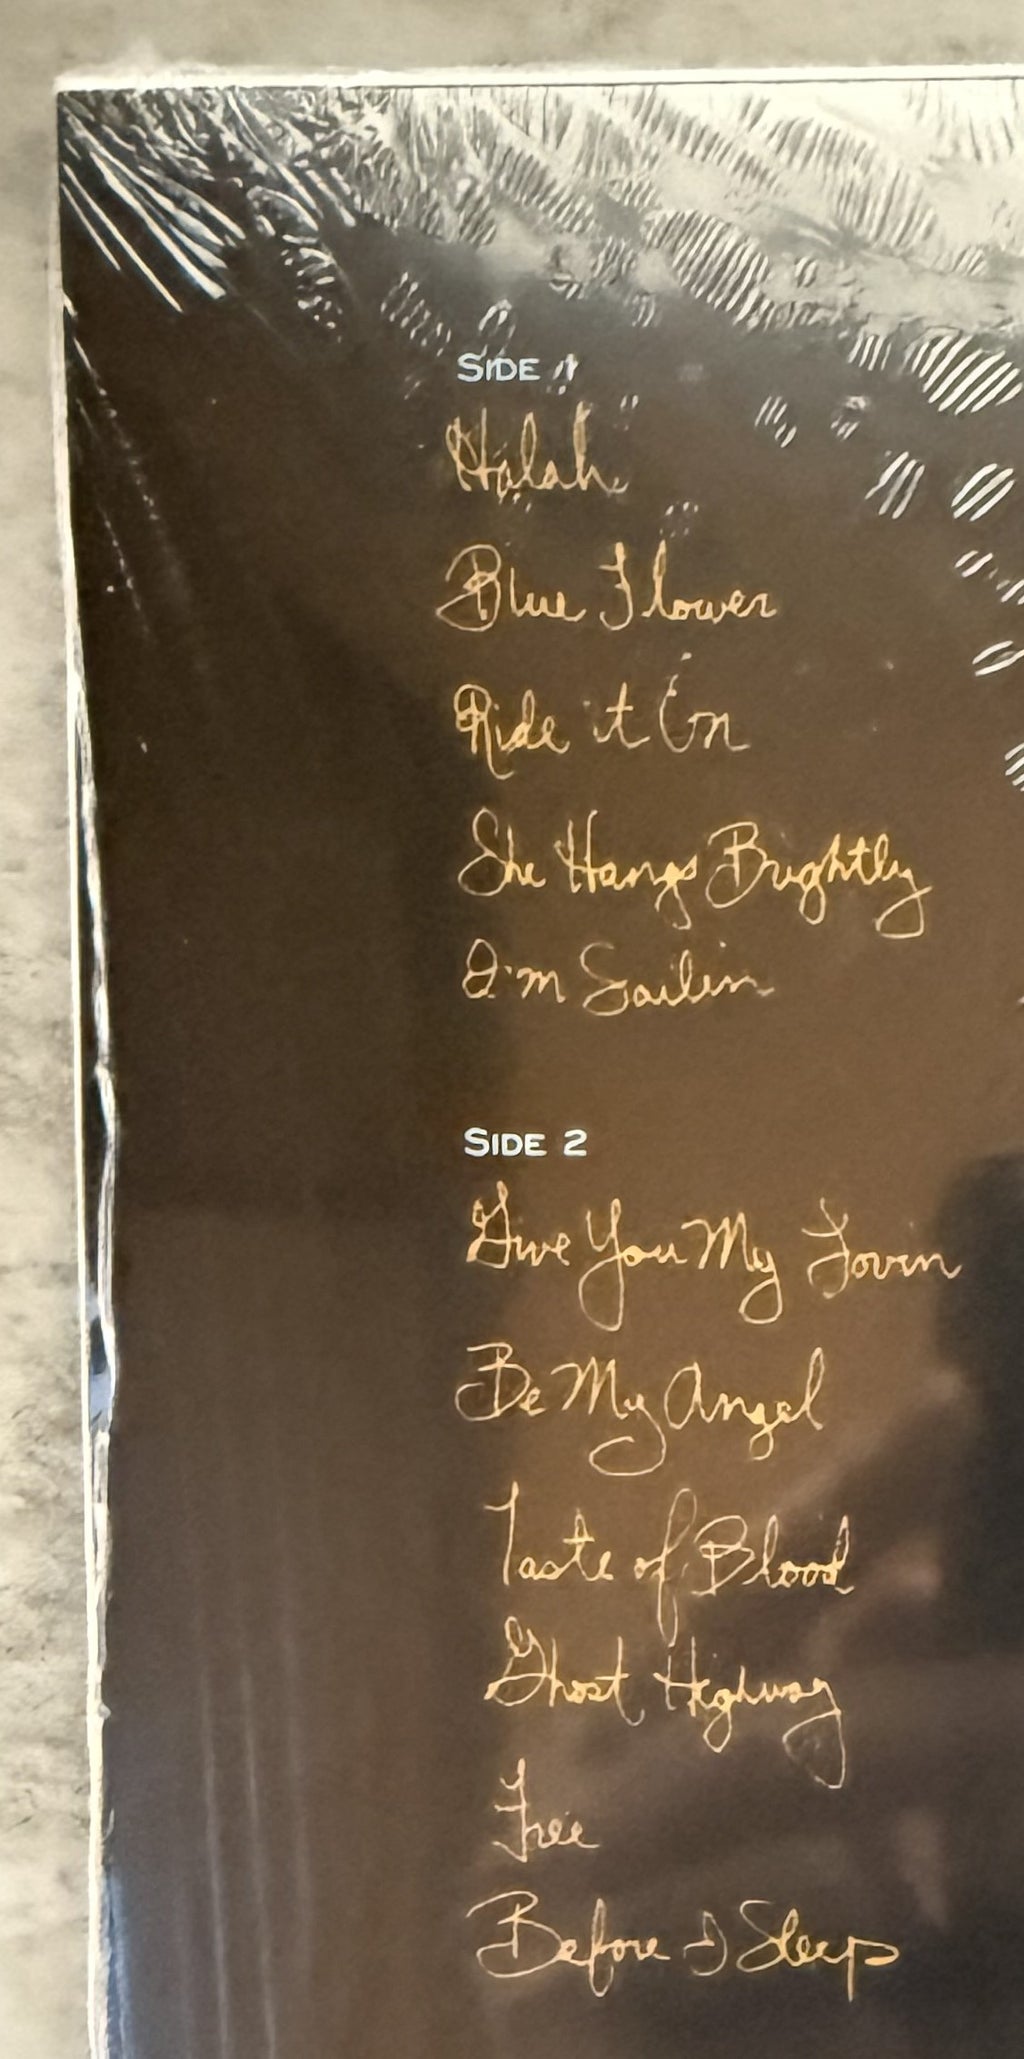 SIDE 1
Halah
Blue Flower
Ride it On
She Hangs Brightly
I'm Sailin
SIDE 2
Give You My Lovin
Be My Angel
Taste of Blood
Ghost Highway
Free
Before I Sleep